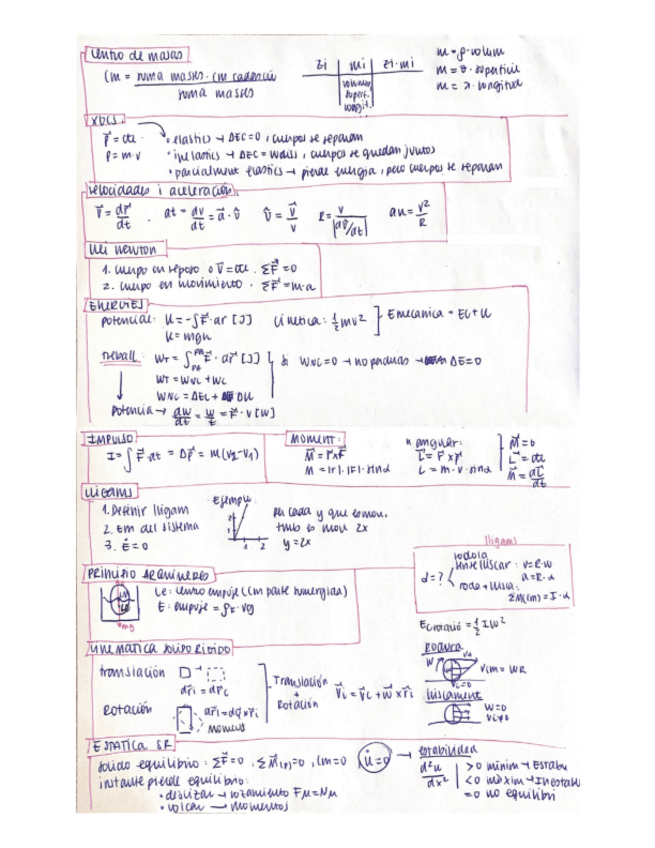 centro de masas
Cm = suma masses · cm cadascú / suma masses
zi | mi | zi·mi
volum
superf.
longit.
m = ρ · volum
m = σ · superfície
m = λ · longitud
XOCS
p⃗ = cte. → elàstics → ΔEC=0, cuerpos se separan
p = m·v • inelàstics → ΔEC = , cuerpos se quedan juntos
• parcialment elàstics → pierde energía, pero cuerpos se separan
velocidades i aceleración
v⃗ = dr⃗/dt . at = dv/dt = a⃗ · v̂ v̂ = v⃗/v R = v/|dv̂/dt| an = v²/R
Llei newton
1. cuerpo en reposo o v⃗ = cte. Σ F⃗ = 0
2. cuerpo en movimiento · Σ F⃗ = m·a
ENERGIES
potencial: U = -∫F⃗·dr [J] cinetica: ½mv² ] Emecanica = Ec + U
U = mgh
treball: WT = ∫ F⃗ · dr⃗ [J] si WNC=0 → no perduas → ΔE=0
WT = WNC + WC
WNC = ΔEC + ΔU
potencia → dw/dt = w/t = F⃗ · v [W]
IMPULSO
I = ∫ F⃗·dt = Δp⃗ = m(v2-v1)
MOMENT:
M⃗ = r⃗ x F⃗
M = |r|·|F|·sinα
m angular:
L⃗ = r⃗ x p⃗
L = m·v·sinα
M⃗ = 0
L⃗ = cte
M⃗ = dL⃗/dt
lligams
1. Definir lligam
2. Em del sistema
3. Ė = 0
Ejemplo:
2
1 2
per cada y que es mou,
tmb es mou 2x
y = 2x
lligams
α = ?
rodola
sense lliscar: v = R·w
a = R·α
roda + llisca:
ΣM(cm) = I·α
PRINCIPIO ARQUIMEDES
mg
Ce: centro empuje (cm parte sumergida)
E: empuje = ρF·Vg
Ecrotació = ½ I W²
cinematica solido rigido
translación
dr⃗i = dr⃗c
Rotación
dr⃗i = dφ⃗ x r⃗i
moment
Translación
+
Rotación
v⃗i = v⃗c + w⃗ x r⃗i
Rodura
W
vcm = WR
vi=0
lliscament
W=0
vi≠0
ESTATICA SR
solido equilibrio: ΣF⃗ = 0, ΣM⃗(p) = 0, Cm=0, u̇=0 → estabilidad
instante pierde equilibrio:
• deslizar → rozamiento Fμ = Nμ
• volcar → momentos
d²u/dx²
>0 minim → Estab
<0 màxim → Inestab
=0 no equilibri